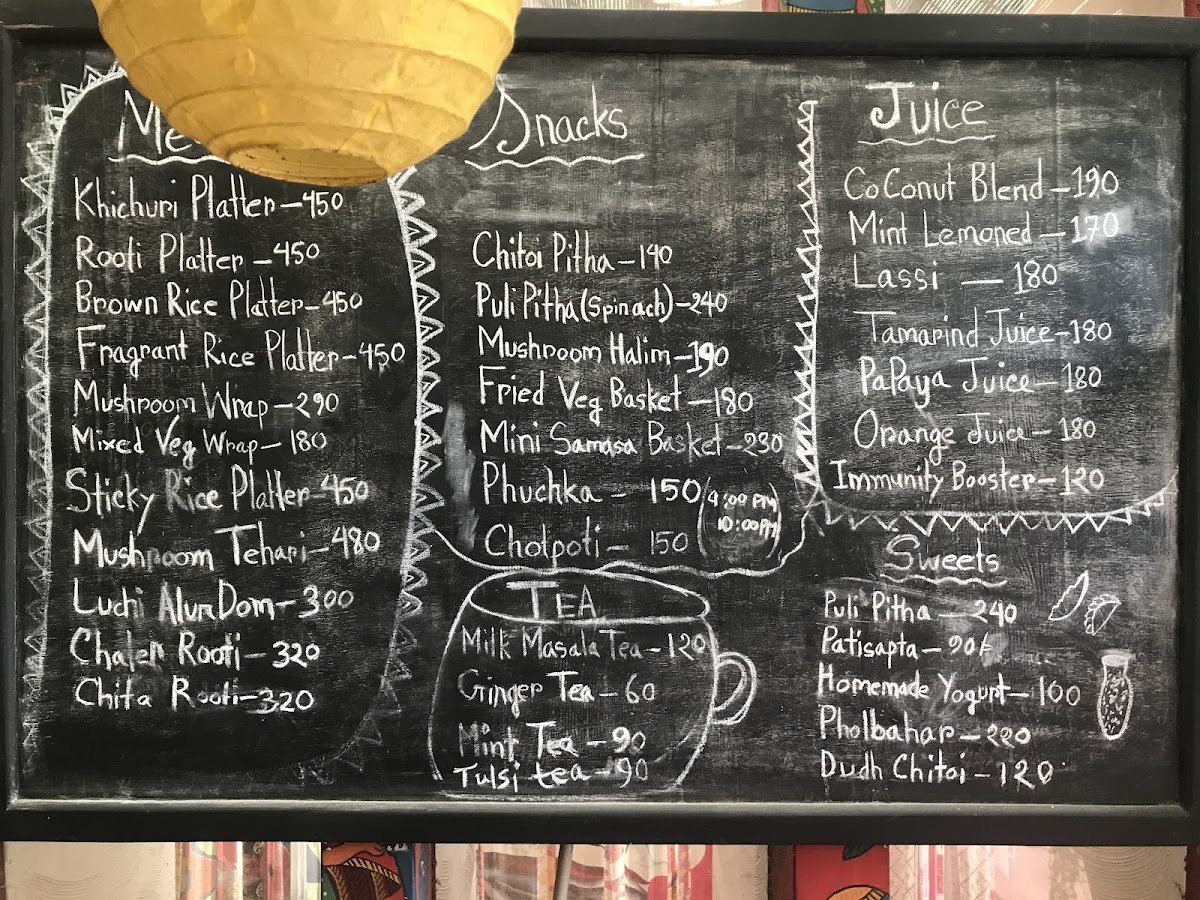 Khichuri Platter – 450
Rooti Platter – 450
Brown Rice Platter – 450
Fragrant Rice Platter – 450
Mushroom Wrap – 290
Mixed Veg Wrap – 180
Sticky Rice Platter – 450
Mushroom Tehari – 480
Luchi Alur Dom – 300
Chaler Rooti – 320
Chita Rooti – 320
Snacks
Chitoi Pitha – 140
Puli Pitha (Spinach) – 240
Mushroom Halim – 190
Fried Veg Basket – 180
Mini Samasa Basket – 230
Phuchka – 150 (9:00 PM
10:00 PM)
Chotpoti – 150
TEA
Milk Masala Tea – 120
Ginger Tea – 60
Mint Tea – 90
Tulsi tea – 90
Juice
CoConut Blend – 190
Mint Lemoned – 170
Lassi — 180
Tamarind Juice – 180
PaPaya Juice – 180
Orange Juice – 180
Immunity Booster – 120
Sweets
Puli Pitha – 240
Patisapta – 90/-
Homemade Yogurt – 100
Pholbahar – 220
Dudh Chitoi – 120